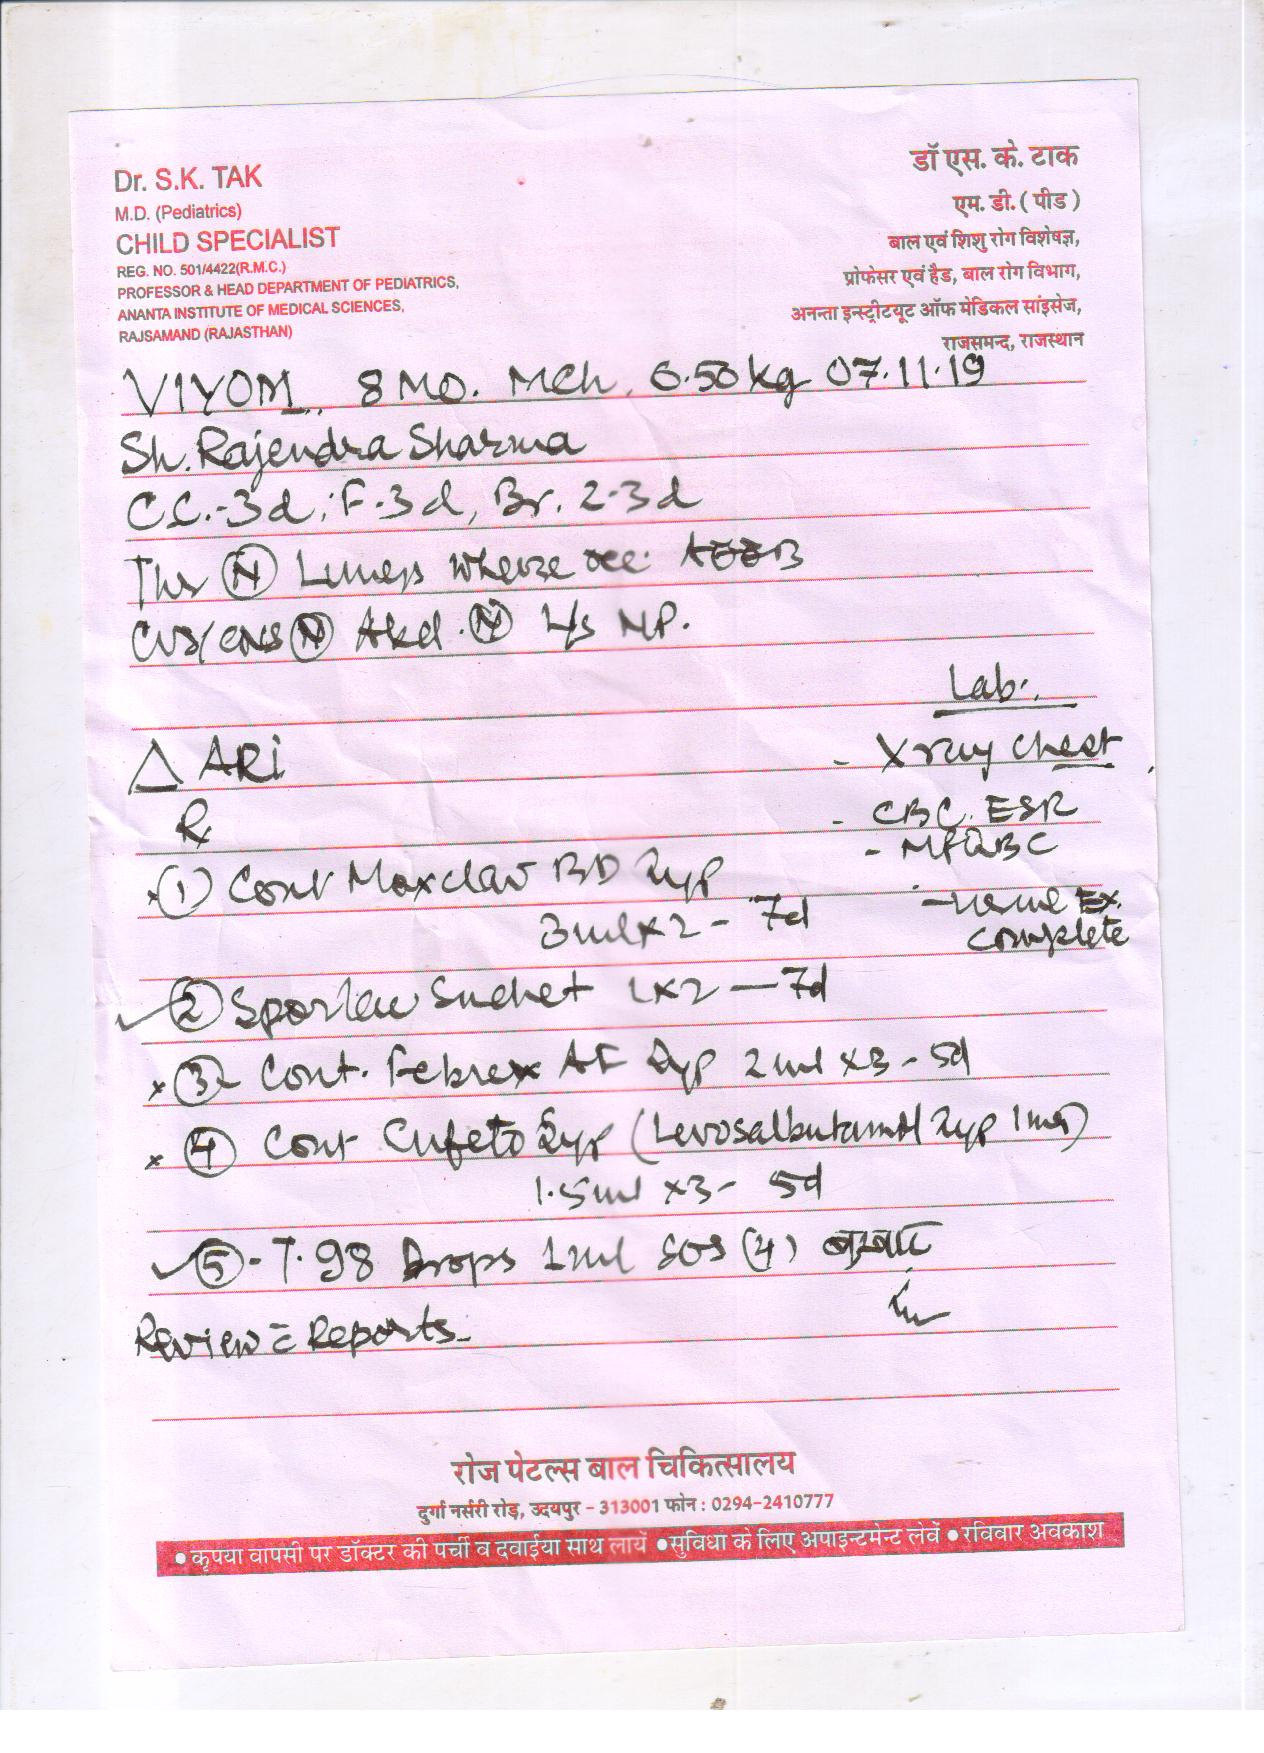 Dr. S.K. TAK
M.D. (Pediatrics)
CHILD SPECIALIST
REG. NO. 501/4422(R.M.C.)
PROFESSOR & HEAD DEPARTMENT OF PEDIATRICS,
ANANTA INSTITUTE OF MEDICAL SCIENCES,
RAJSAMAND (RAJASTHAN)
डॉ एस. के. टाक
एम. डी. ( पीड )
बाल एवं शिशु रोग विशेषज्ञ,
प्रोफेसर एवं हैड, बाल रोग विभाग,
अनन्ता इन्स्टीटयूट ऑफ मेडिकल सांइसेज,
राजसमन्द, राजस्थान
VIYOM 8 MO. MCh. 6.50 kg 07.11.19
Sh. Rajendra Sharma
C.C.-3d; F-3d, Br. 2-3d
Thr (N) Lungs
CVS/CNS (N) Abd. (N) L/s NP.
Lab.
△ ARI
- X ray chest
℞
- CBC. ESR
- MPQBC
(1) Cont Moxclav BD Syp
3ml x 2 - 7d
- urine Ex.
complete
(2) Sporlac Sachet 1x2 — 7d
x (3) Cont. Febrex AF Syp 2ml x3 - 5d
x (4) Cont Cufeto Syp (Levosalbutamol Syp 1mg)
1.5ml x3- 5d
(5)- T-98 Drops 1ml SOS (4) बुखार
Review c̄ Reports
रोज पेटल्स बाल चिकित्सालय
दुर्गा नर्सरी रोड़, उदयपुर - 313001 फोन : 0294-2410777
• कृपया वापसी पर डॉक्टर की पर्ची व दवाईया साथ लायें • सुविधा के लिए अपाइन्टमेन्ट लेवें • रविवार अवकाश